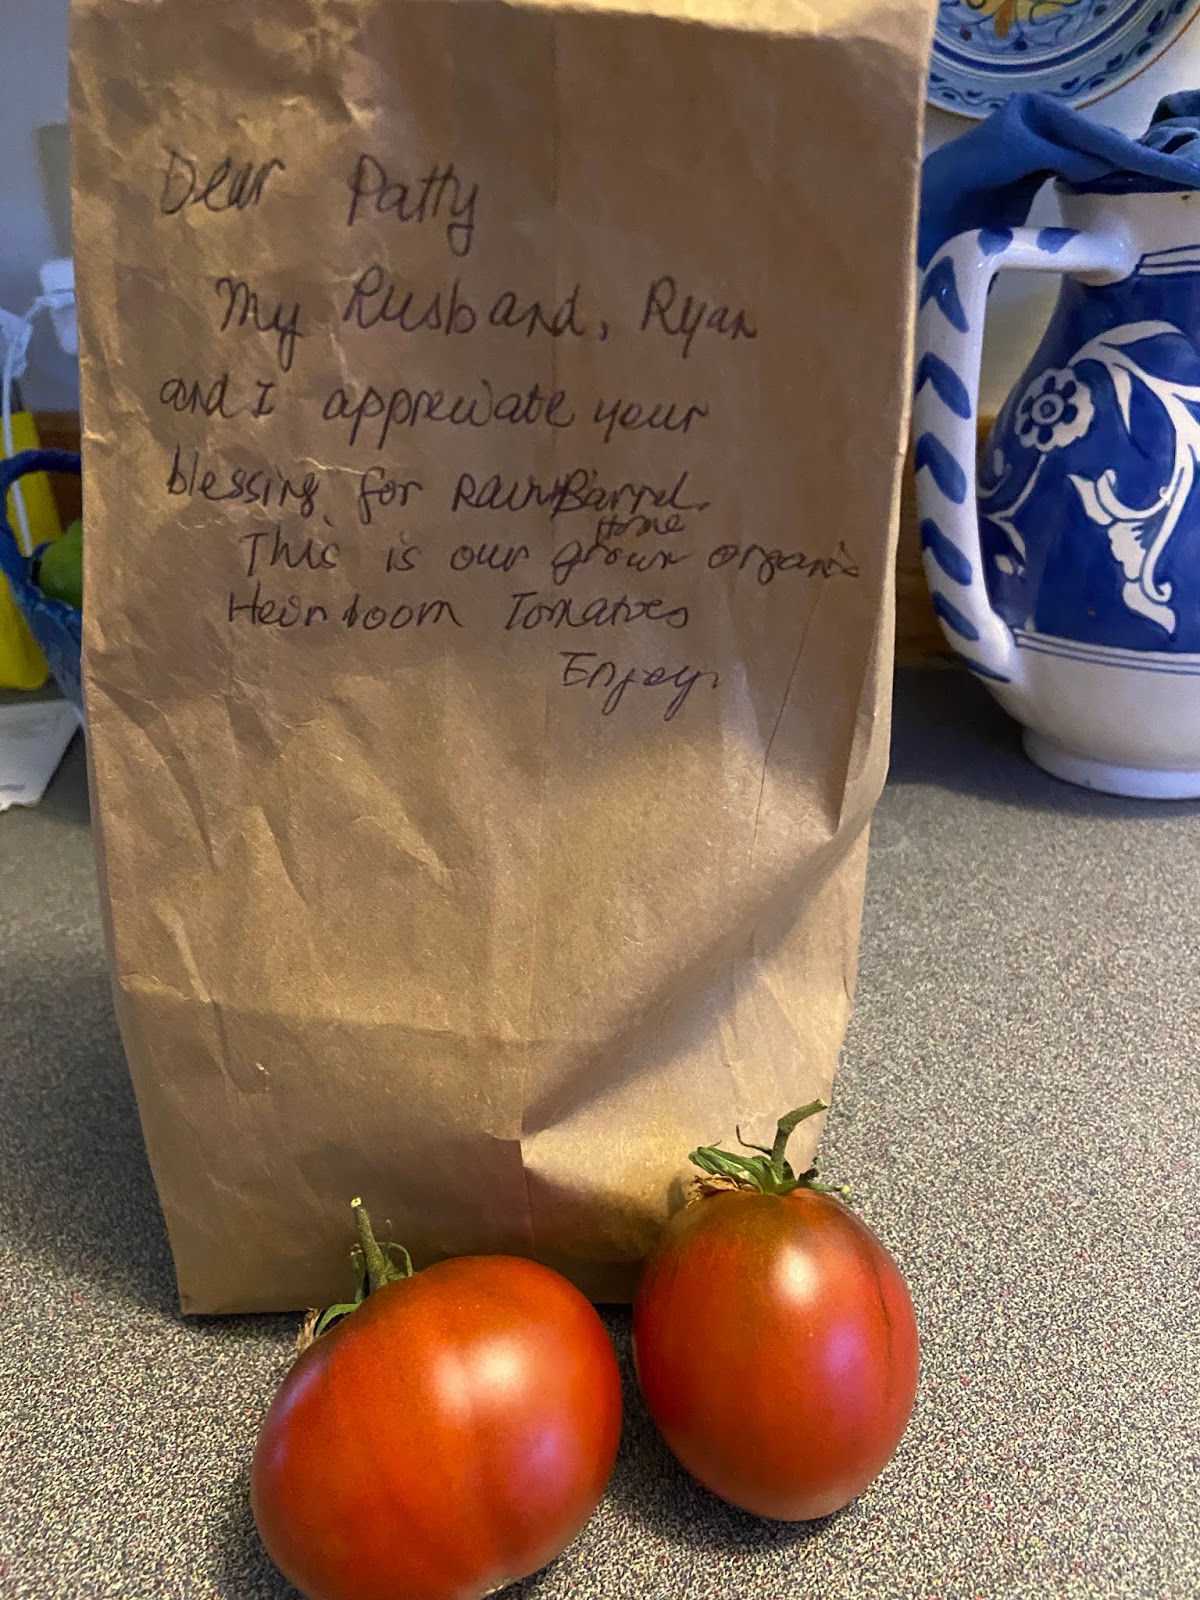 Dear Patty
My Husband, Ryan
and I appreciate your
blessing for Rain Barrel.
This is our Home grown organic
Heirloom Tomatoes
Enjoy.